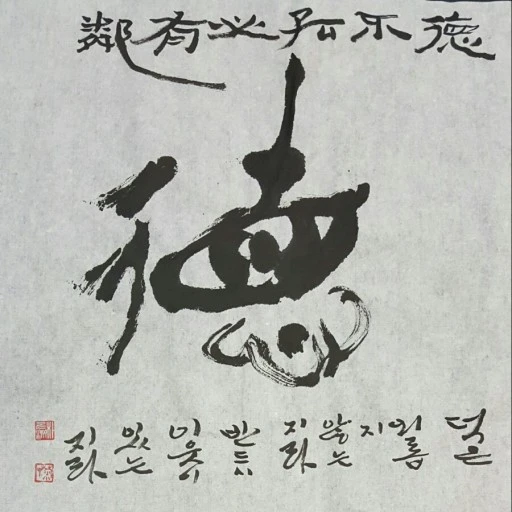 德不孤必有鄰
德
덕은 외롭지 않는지라 반드시 이웃이 있는지라